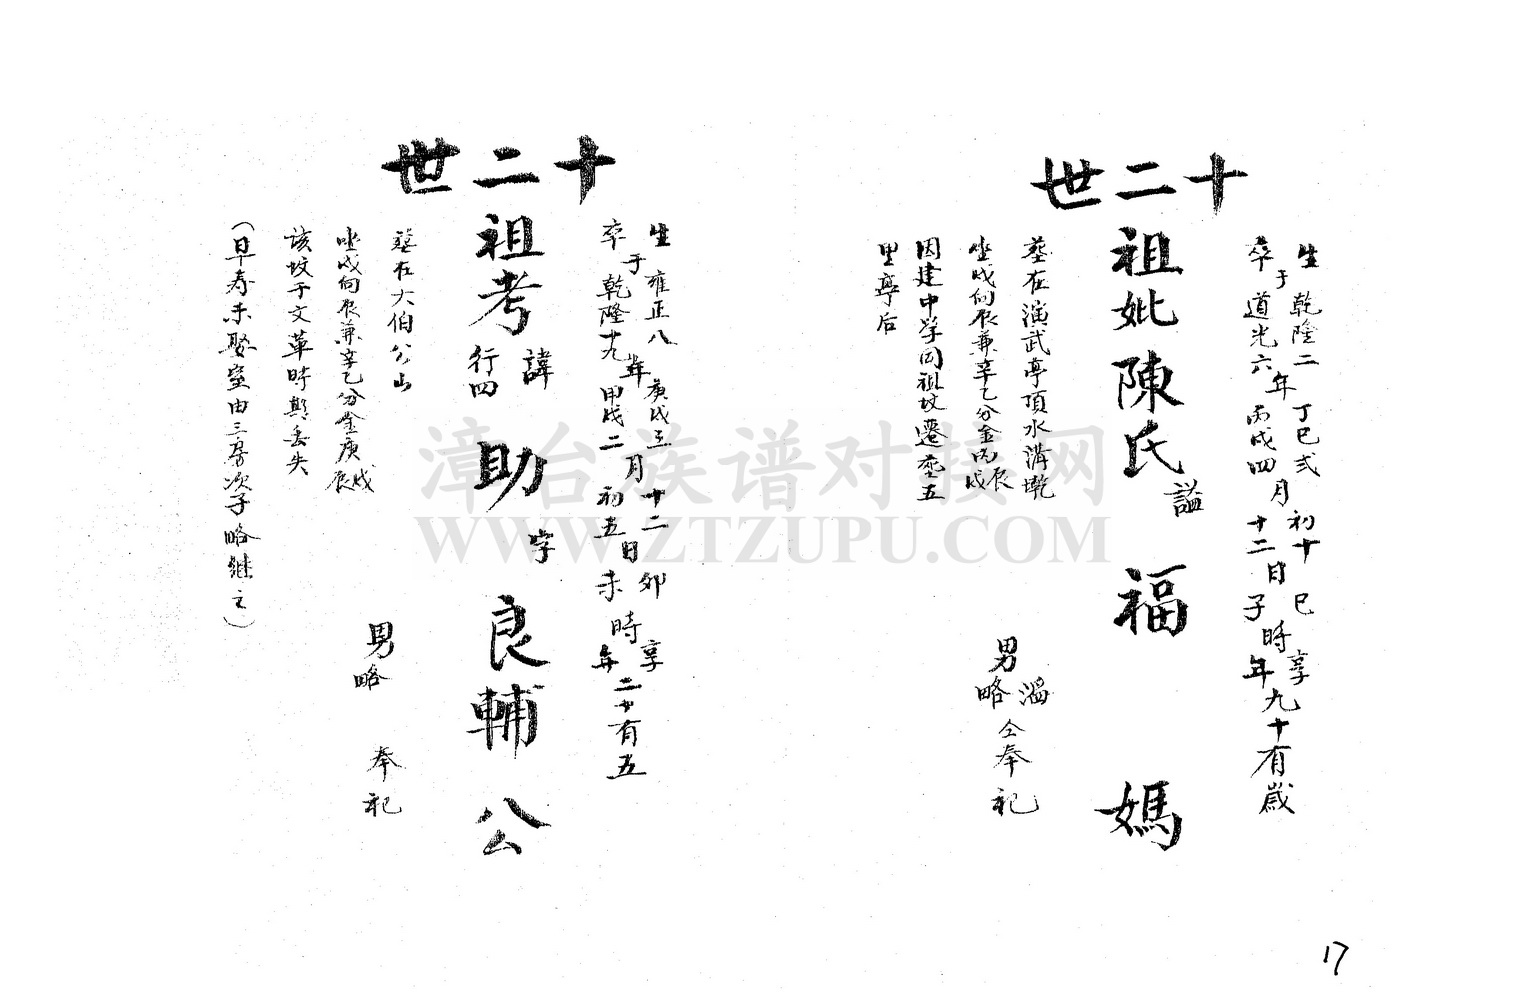 十二世
生于乾隆二年丁巳弍月初十日巳時享
卒于道光六年丙戌四月十二日子時年九十有歲
祖妣陳氏謚福媽
墓在演武亭頂水溝墘
坐戌向辰兼辛乙分金丙戌丙辰
因建中学同祖坟遷塟五
里亭后
男滔略仝奉祀
十二世
生于雍正八年庚戌三月十二日卯時享
卒于乾隆十九年甲戌二月初五日未時年二十有五
祖考諱助字良輔公
行四
墓在大伯公山
坐戌向辰兼辛乙分金庚戌庚辰
該坟于文革時期丢失
(早寿未娶室由三房次子略継之)
男略奉祀
17
漳台族谱对接网
WWW.ZTZUPU.COM